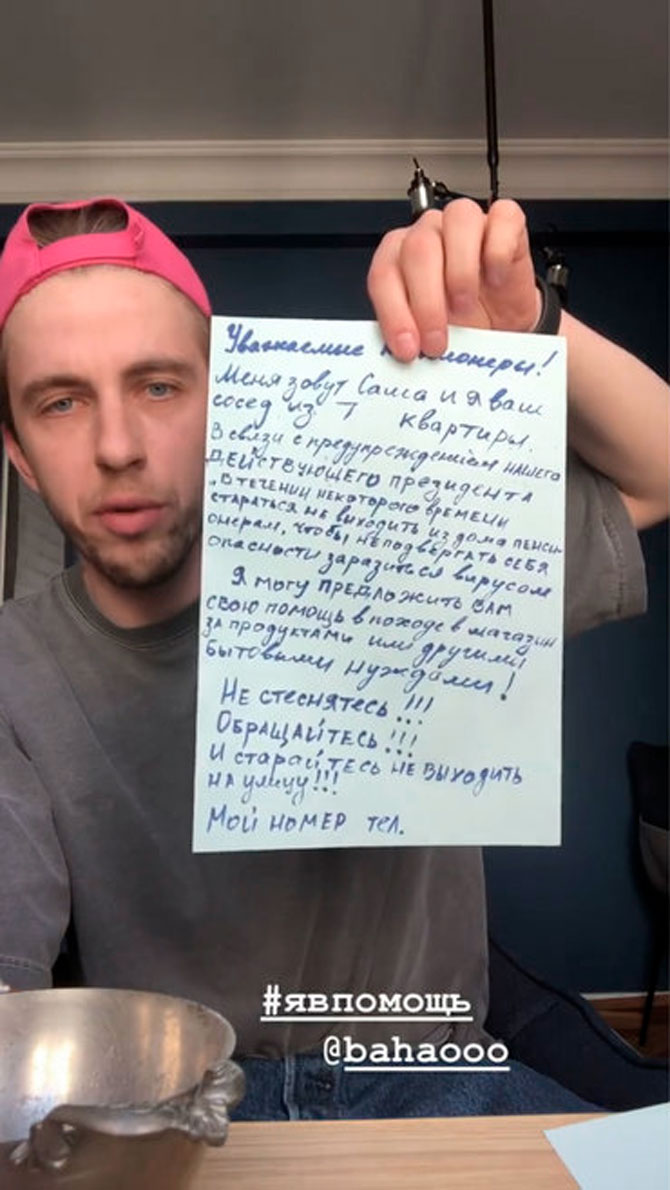 Уважаемые
Меня зовут Саша и я ваш
сосед из 7 квартиры.
В связи с предупреждением нашего
действующего президента
„в течении некоторого времени
стараться не выходить из дома пенси-
онерам, чтобы не подвергать себя
опасности заразиться вирусом
Я могу предложить вам
свою помощь в походе в магазин
за продуктами или другими
бытовыми нуждами!
Не стеснятесь!!!
Обращайтесь!!!
И старайтесь не выходить
на улицу!!!
Мой номер тел.
#явпомощь
@bahaooo